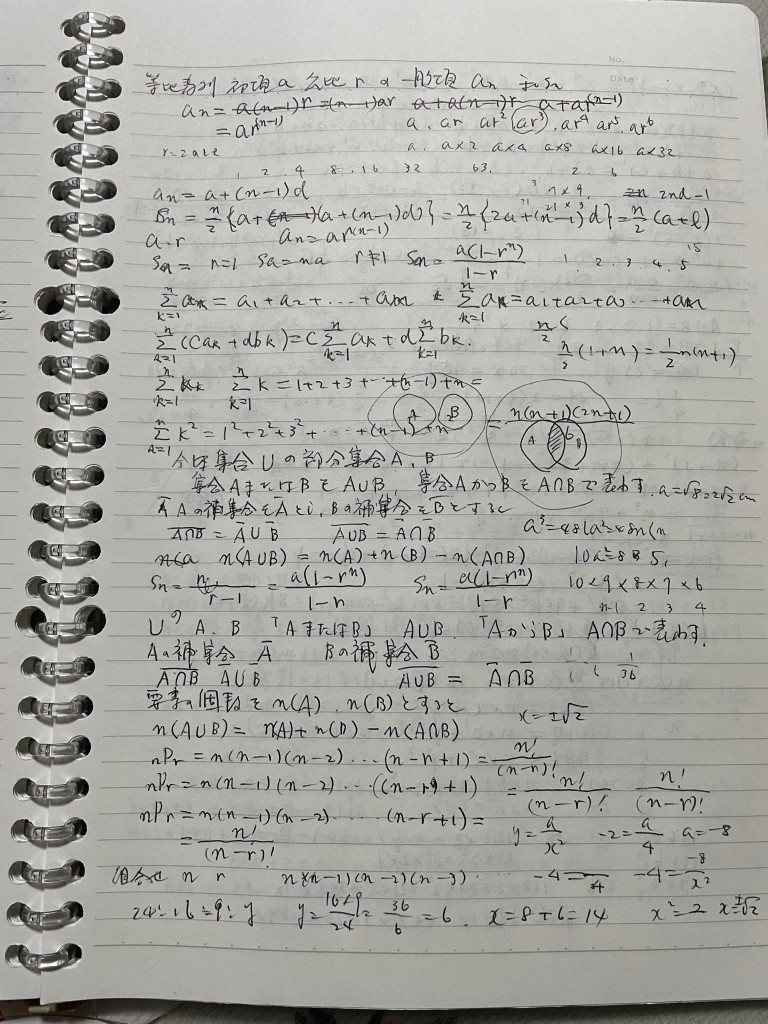 等比数列 初項a 公比r の一般項 an 和Sn
an = a(n-1)r = (n-1)ar a+a(n-1)r a+ar^(n-1)
= ar^(n-1) a. ar ar² ar³. ar⁴ ar⁵. ar⁶
a. a×2 a×4 a×8 a×16 a×32
1 2. 4 8. 16 32 63.
an = a+(n-1)d 2nd-1
Sn = n/2{a+(a+(n-1)d)} = n/2{2a+(n-1)d} = n/2(a+l)
a.r an = ar^(n-1)
r=1 Sa=na r≠1 Sn = a(1-rⁿ)/1-r 1. 2. 3. 4. 5 15
nΣk=1 ak = a1+a2+...+an nΣk=1 ak = a1+a2+a3...+an
nΣk=1 (cak+dbk) = c nΣk=1 ak + d nΣk=1 bk. n/2(
n/2(1+n) = 1/2n(n+1)
nΣk=1 k nΣk=1 k = 1+2+3+...+(n-1)+n =
A B
nΣk=1 k² = 1²+2²+3²+...+(n-1)+n² = n(n+1)(2n+1)
A B
集合Uの部分集合A、B
集合AまたはBをA∪B、集合AかつBをA∩Bで表わす. a=√8=2√2cm
Aの補集合をA̅とし、Bの補集合をB̅とすると
A̅∩̅B̅ = A̅∪B̅ A̅∪̅B̅ = A̅∩B̅
n(A∪B) = n(A)+n(B)-n(A∩B)
Sn = a(1-rⁿ)/1-r Sn = a(1-rⁿ)/1-r 10×9×8×7×6
n-1 2 3 4
Uの A. B 「AまたはB」 A∪B. 「AかつB」 A∩Bで表わす.
Aの補集合 A̅ Bの補集合 B̅
A̅∩̅B̅ A̅∪B̅ A̅∪̅B̅ = A̅∩B̅ 1/36
要素の個数をn(A). n(B)とすると
x=±√2
n(A∪B) = n(A)+n(B)-n(A∩B)
nPr = n(n-1)(n-2)...(n-r+1) = n!/(n-r)!
nPr = n(n-1)(n-2)...((n-r+1) = n!/(n-r)! n!/(n-r)!
nPr = n(n-1)(n-2)......(n-r+1) =
= n!/(n-r)! y=a/x² -2=a/4 a=-8
組合せ n r n(n-1)(n-2)(n-3).... -4= /4 -4=-8/x²
24:16=9:y y=16×9/24=36/6=6. x=8+6=14 x²=2 x=±√2